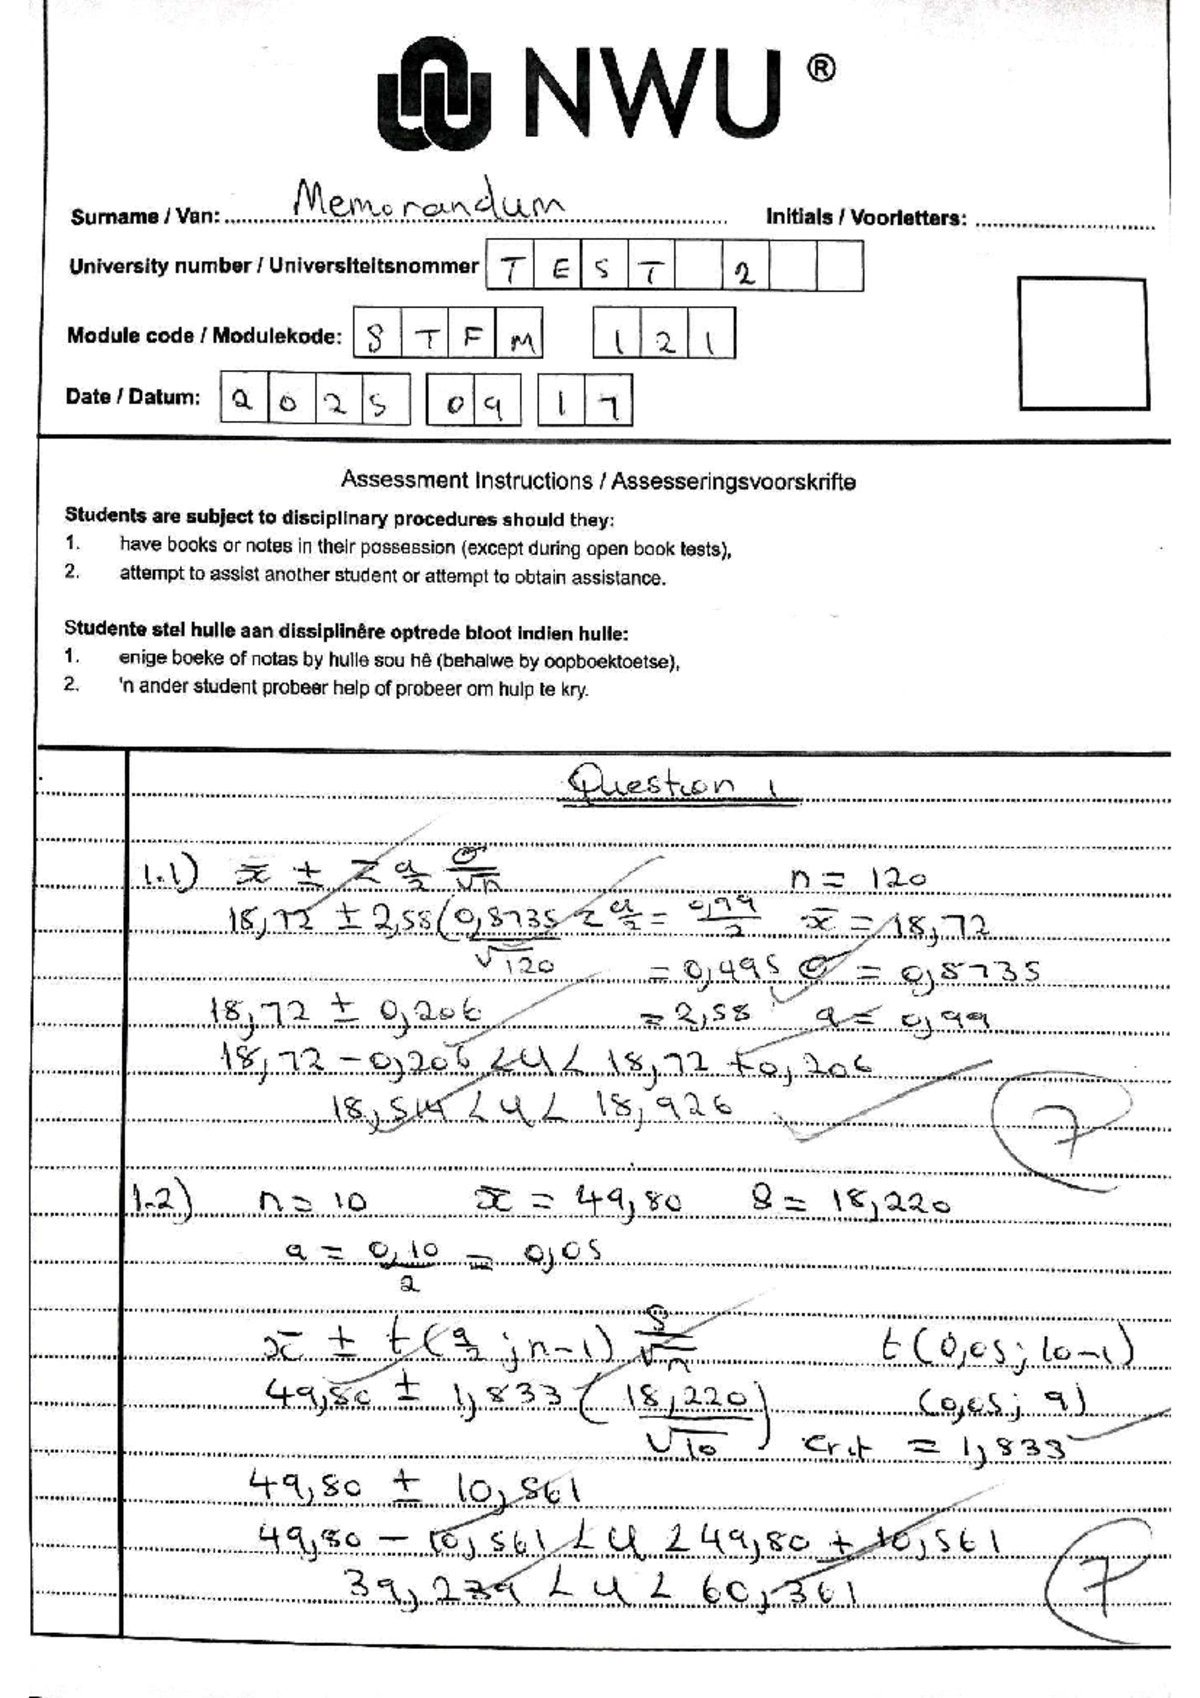 NWU ®
Surname / Van: Memorandum Initials / Voorletters:
University number / Universiteitsnommer T E S T 2
Module code / Modulekode: S T F M 1 2 1
Date / Datum: 2 0 2 5 0 9 1 7
Assessment Instructions / Assesseringsvoorskrifte
Students are subject to disciplinary procedures should they:
1. have books or notes in their possession (except during open book tests),
2. attempt to assist another student or attempt to obtain assistance.
Studente stel hulle aan dissiplinêre optrede bloot indien hulle:
1. enige boeke of notas by hulle sou hê (behalwe by oopboektoetse),
2. 'n ander student probeer help of probeer om hulp te kry.
Question 1
1.1) x̄ ± z a/2 σ/√n n = 120
18,72 ± 2,58 (0,8735/√120 z a/2 = 0,99/2 x̄ = 18,72
= 0,495 σ = 0,8735
18,72 ± 0,206 = 2,58 a = 0,99
18,72 - 0,206 < u < 18,72 + 0,206
18,514 < u < 18,926
7
1.2) n = 10 x̄ = 49,80 S = 18,220
a = 0,10/2 = 0,05
x̄ ± t (a/2 ; n-1) S/√n t (0,05; 10-1)
49,80 ± 1,833 (18,220/√10) (0,05; 9)
crit = 1,833
49,80 ± 10,561
49,80 - 10,561 < u < 49,80 + 10,561
39,239 < u < 60,361
7